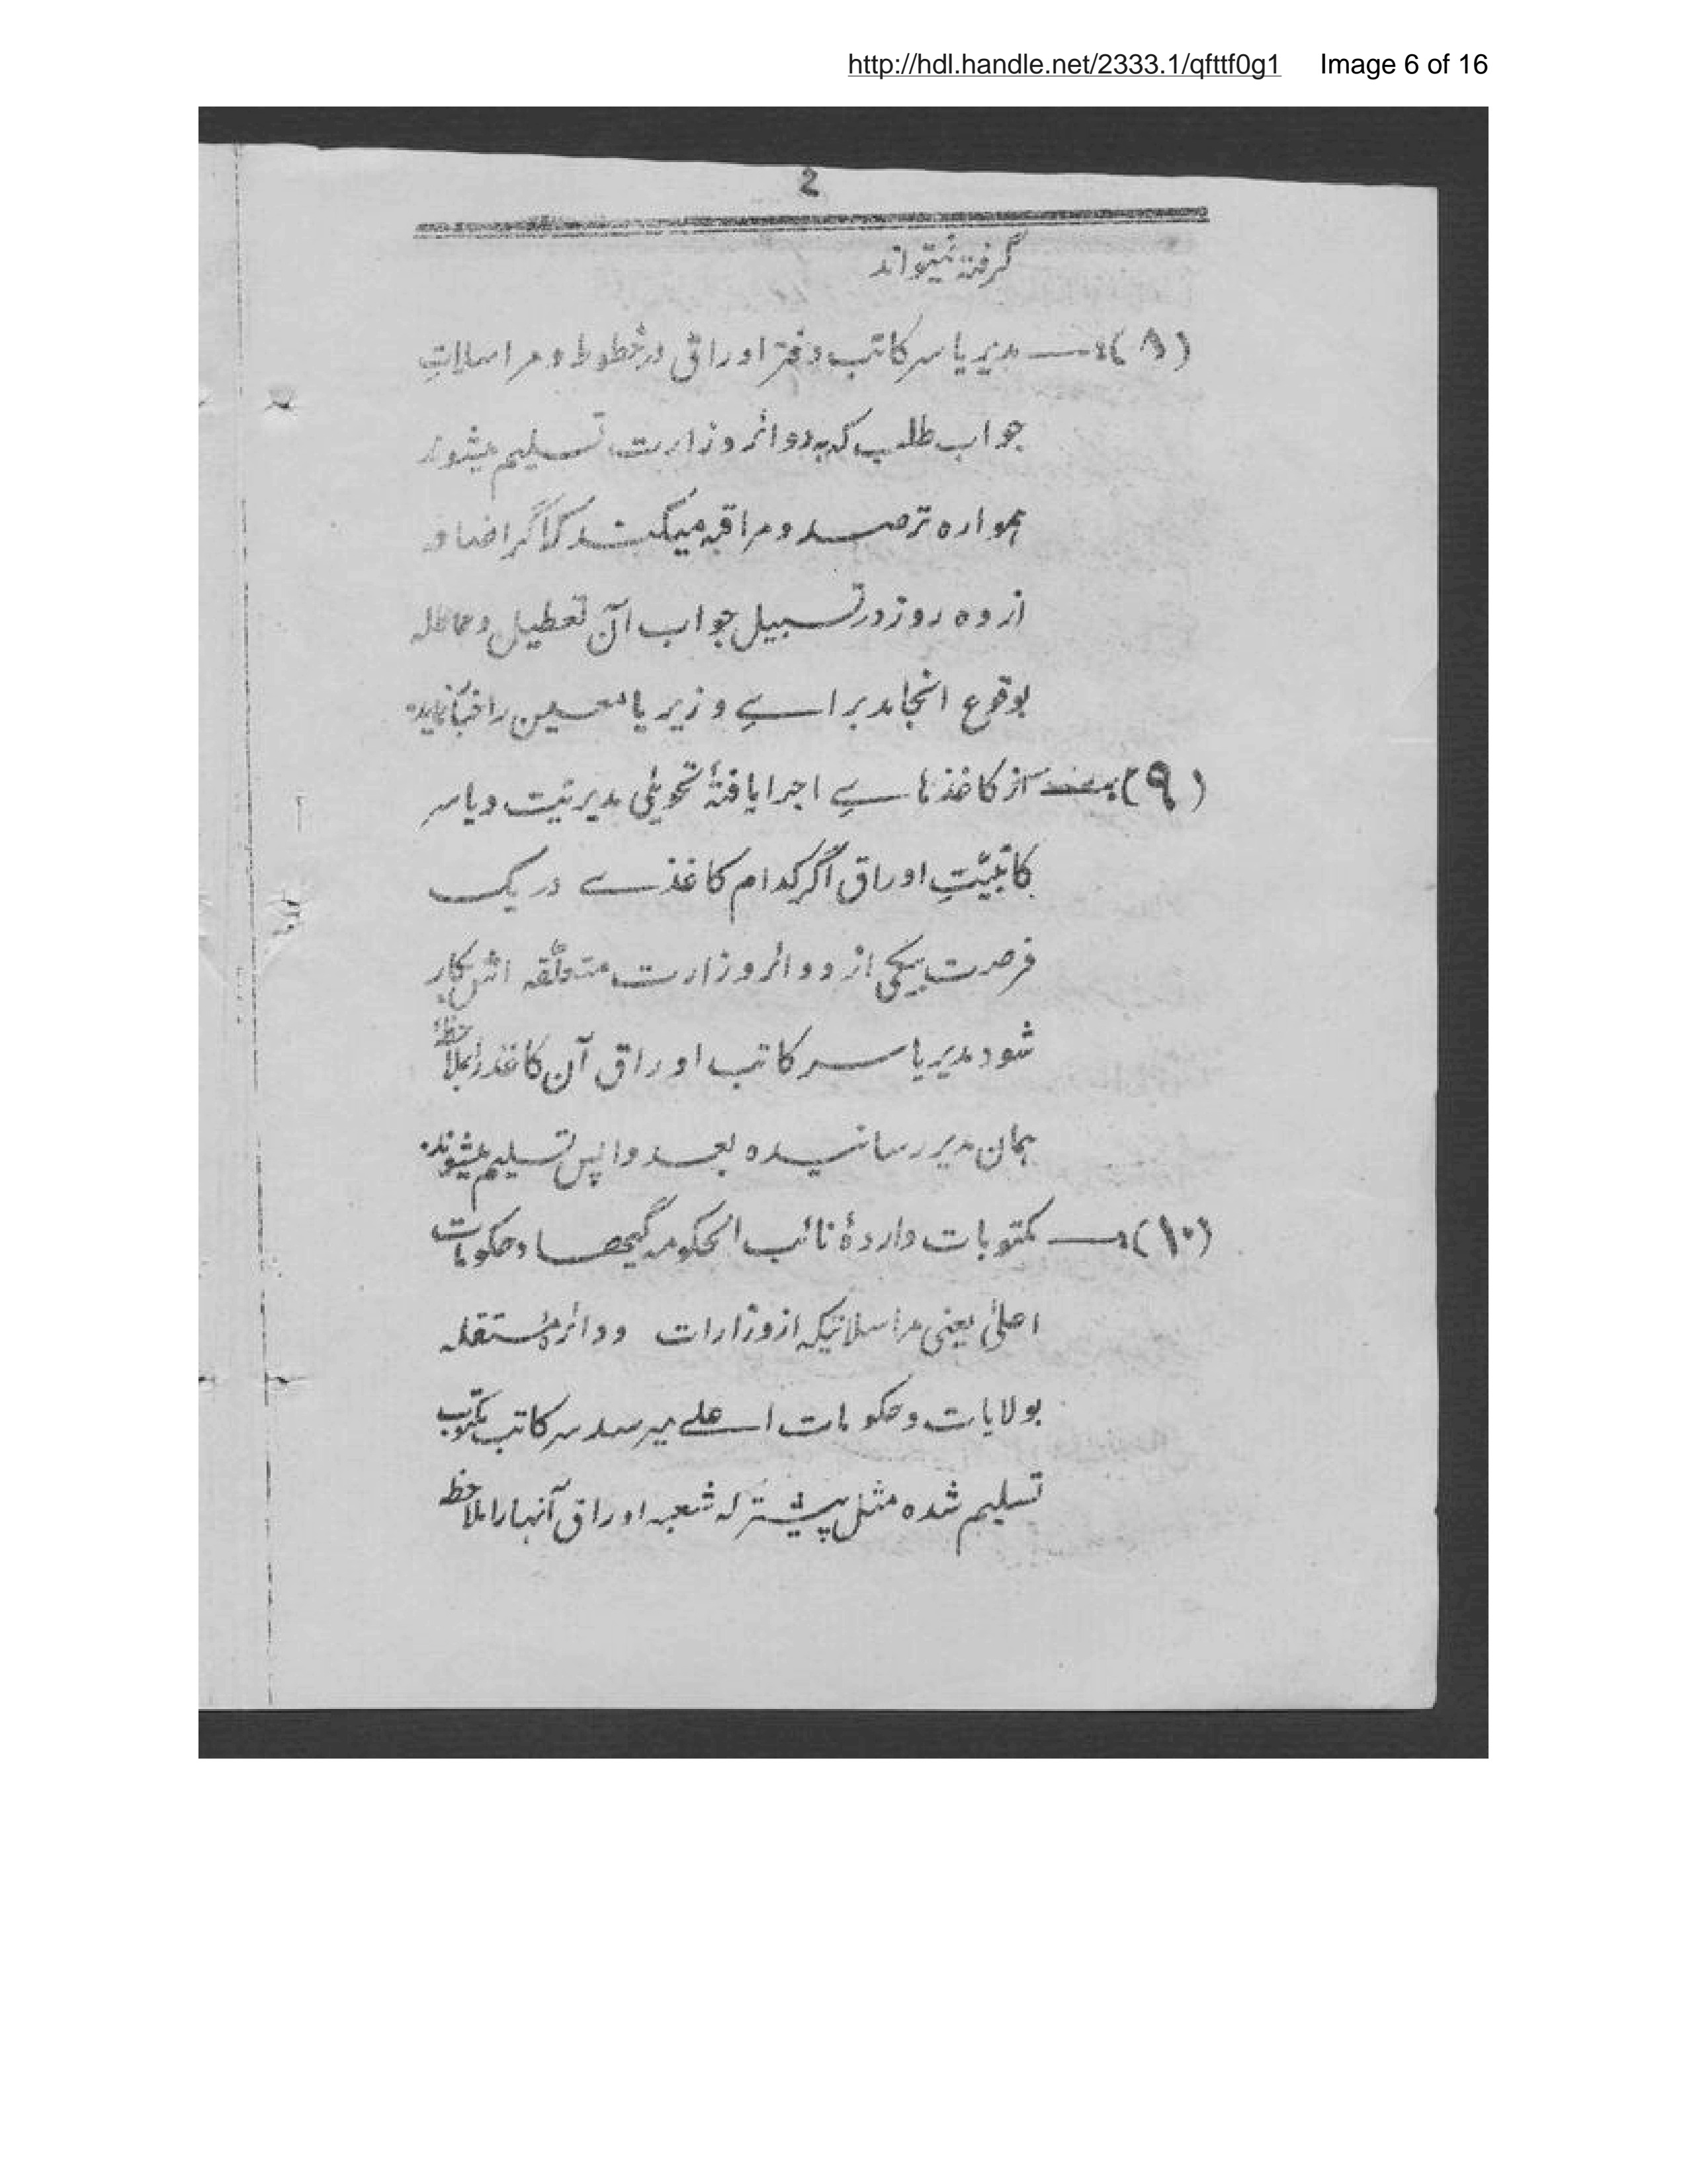 http://hdl.handle.net/2333.1/qfttf0g1 Image 6 of 16
2
گرفته نمیتواند
(۸) :— مدیر یا سرکاتب دفتر اوراقی در خطوط و مراسلاتِ
جواب طلب که به دوائر وزارت تسلیم میشوند
همواره ترصد و مراقبه میکند که اگر اضافه
از ده روز در تسبیل جواب آن تعطیل و مماطله
بوقوع انجامد براے وزیر یا معین را
(۹) بعد از کاغذهاے اجرا یافتهٔ تحویلی مدیریت و یا سر
کاتبیّتِ اوراق اگر کدام کاغذے در یک
فرصت بیکی از دوائر وزارت متعلّقه اش بکار
شود مدیر یا سرکاتب اوراق آن کاغذ را بملاحظهٔ
همان مدیر رسانیده بعد واپس تسلیم میشوند.
(۱۰) :— مکتوبات واردهٔ نائب الحکومه گیها و حکومات
اعلیٰ یعنی مراسلاتیکه از وزارات و دوائر مستقله
بولایات و حکومات اعلے میرسد سرکاتب مکتوب
تسلیم شده مثل پیشتر که شعبه اوراق آنها را ملاحظه